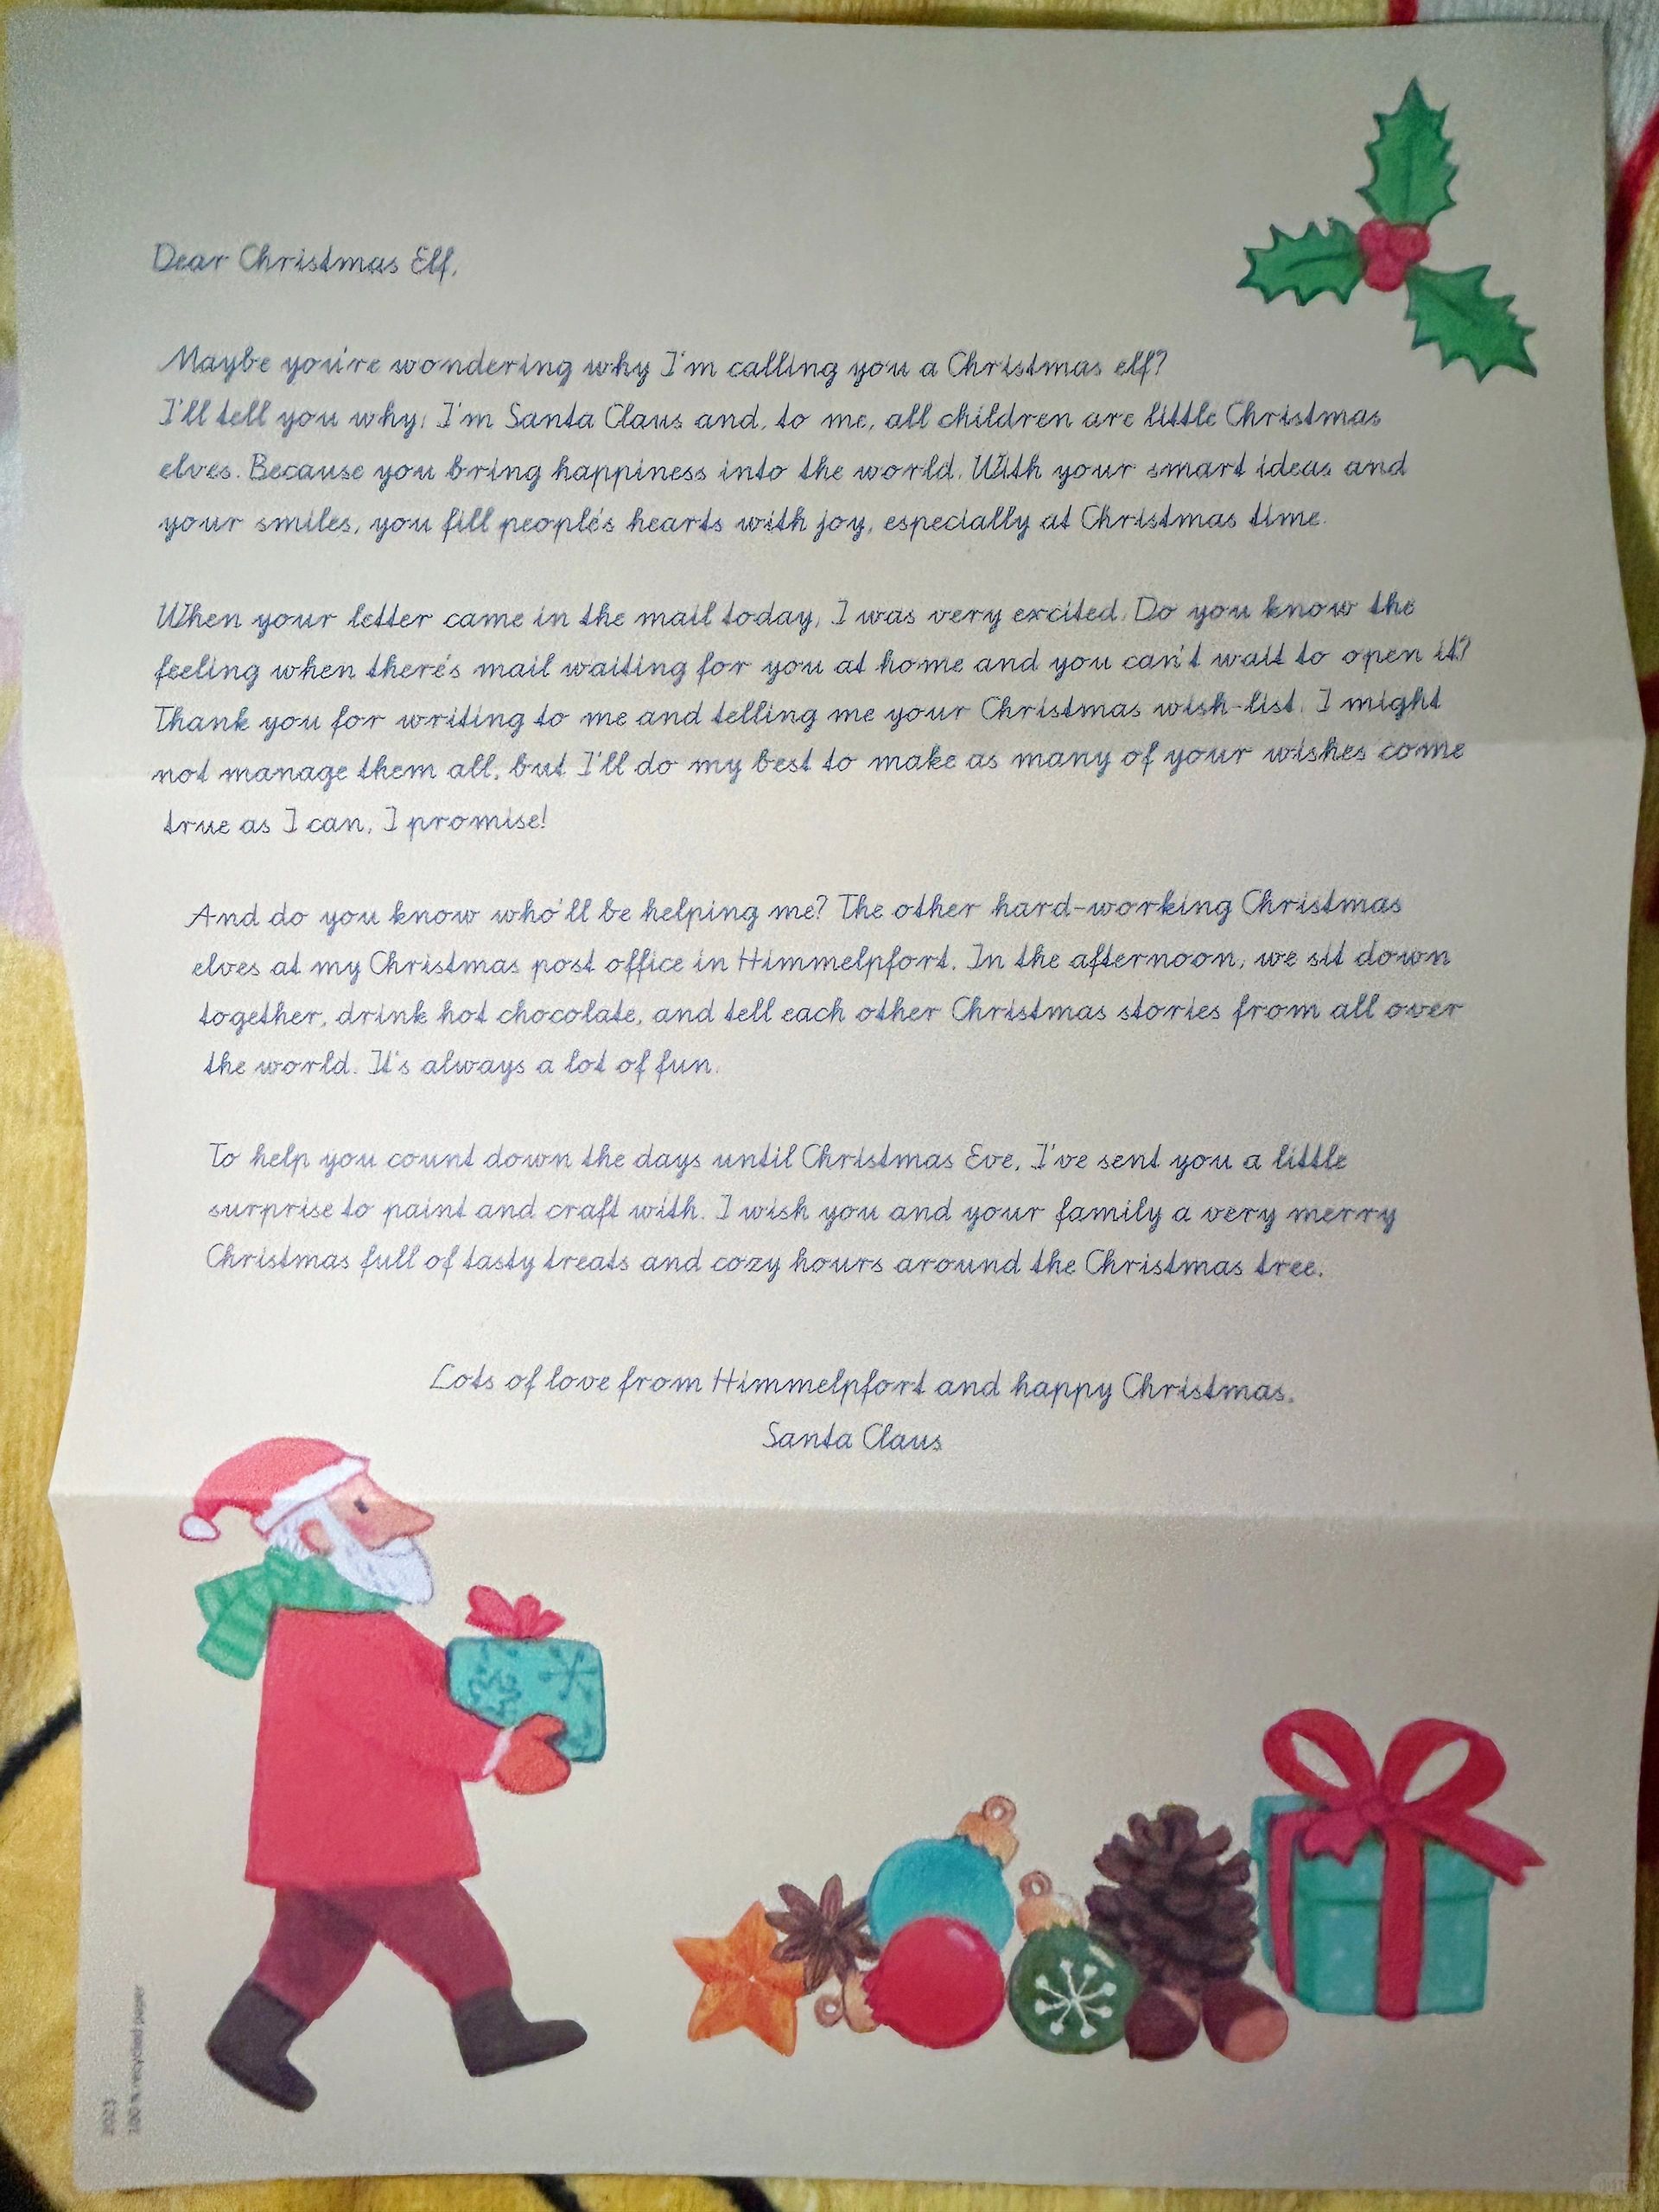 Dear Christmas Elf,
Maybe you're wondering why I'm calling you a Christmas elf?
I'll tell you why: I'm Santa Claus and, to me, all children are little Christmas
elves. Because you bring happiness into the world. With your smart ideas and
your smiles, you fill people's hearts with joy, especially at Christmas time.
When your letter came in the mail today, I was very excited. Do you know the
feeling when there's mail waiting for you at home and you can't wait to open it?
Thank you for writing to me and telling me your Christmas wish-list. I might
not manage them all, but I'll do my best to make as many of your wishes come
true as I can, I promise!
And do you know who'll be helping me? The other hard-working Christmas
elves at my Christmas post office in Himmelpfort. In the afternoon, we sit down
together, drink hot chocolate, and tell each other Christmas stories from all over
the world. It's always a lot of fun.
To help you count down the days until Christmas Eve, I've sent you a little
surprise to paint and craft with. I wish you and your family a very merry
Christmas full of tasty treats and cozy hours around the Christmas tree.
Lots of love from Himmelpfort and happy Christmas,
Santa Claus
2023
100 % recycled paper